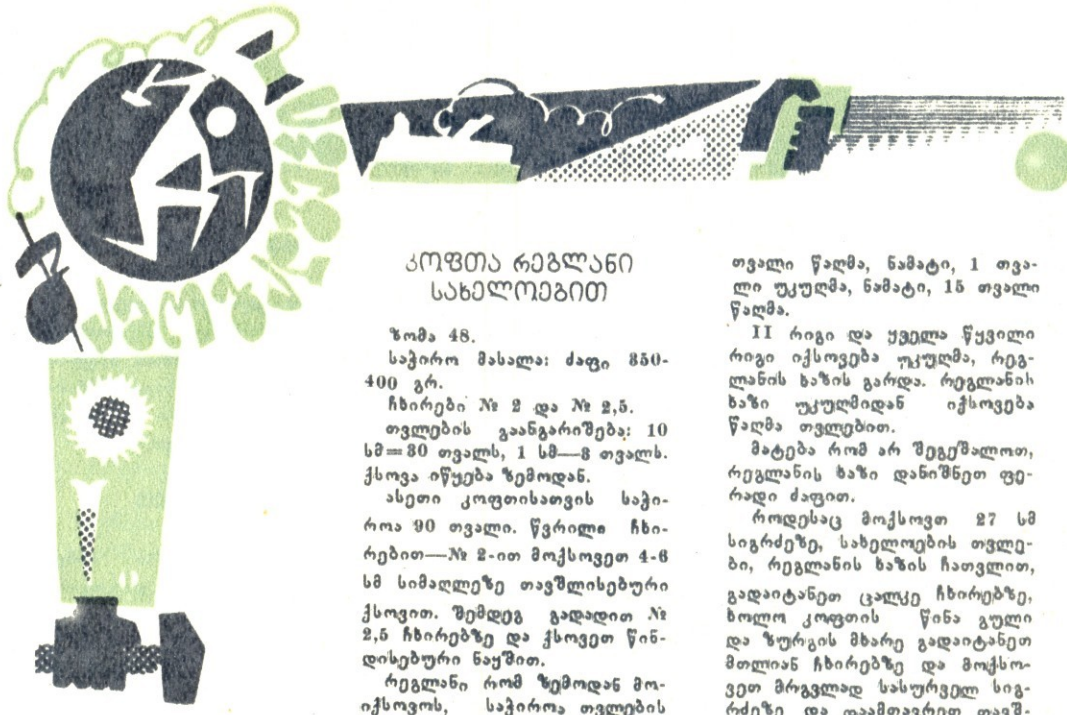 კოფთა რეგლანი
სახელოებით
ზომა 48.
საჭირო მასალა: ძაფი 350-
400 გრ.
ჩხირები № 2 და № 2,5.
თვლების გაანგარიშება: 10
სმ=30 თვალს, 1 სმ—3 თვალს.
ქსოვა იწყება ზემოდან.
ასეთი კოფთისათვის საჭი-
როა 90 თვალი. წვრილი ჩხი-
რებით—№ 2-ით მოქსოვეთ 4-6
სმ სიმაღლეზე თავშლისებური
ქსოვით. შემდეგ გადადით №
2,5 ჩხირებზე და ქსოვეთ წინ-
დისებური ნაყშით.
რეგლანი რომ ზემოდან მო-
იქსოვოს, საჭიროა თვლების
თვალი წაღმა, ნამატი, 1 თვა-
ლი უკუღმა, ნამატი, 15 თვალი
წაღმა.
II რიგი და ყველა წყვილი
რიგი იქსოვება უკუღმა, რეგ-
ლანის ხაზის გარდა. რეგლანის
ხაზი უკუღმიდან იქსოვება
წაღმა თვლებით.
მატება რომ არ შეგეშალოთ,
რეგლანის ხაზი დანიშნეთ ფე-
რადი ძაფით.
როდესაც მოქსოვთ 27 სმ
სიგრძეზე, სახელოების თვლე-
ბი, რეგლანის ხაზის ჩათვლით,
გადაიტანეთ ცალკე ჩხირებზე,
ხოლო კოფთის წინა გული
და ზურგის მხარე გადაიტანეთ
მთლიან ჩხირებზე და მოქსო-
ვეთ მრგვლად სასურველ სიგ-
რძეზე და დაამთავრეთ თავშ-